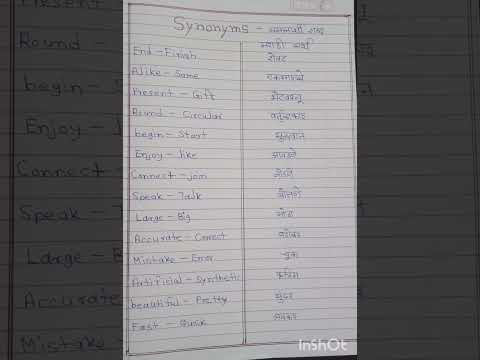 Synonyms - समानार्थी शब्द
मराठी अर्थ
End - Finish शेवट
Alike - Same एकसारखे
Present - Gift भेटवस्तू
Round - Circular वर्तुळाकार
begin - Start सुरुवात
Enjoy - like आवडणे
Connect - join जोडणे
Speak - Talk बोलणे
Large - Big मोठा
Accurate - Correct बरोबर
Mistake - Error चूक
Artificial - Synthetic कृत्रिम
beautiful - Pretty सुंदर
Fast - Quick लवकर
Present
Round -
begin - S
Enjoy -
Connect -
Speak - T
Large - B
Accurate
Mistake -
InShOt